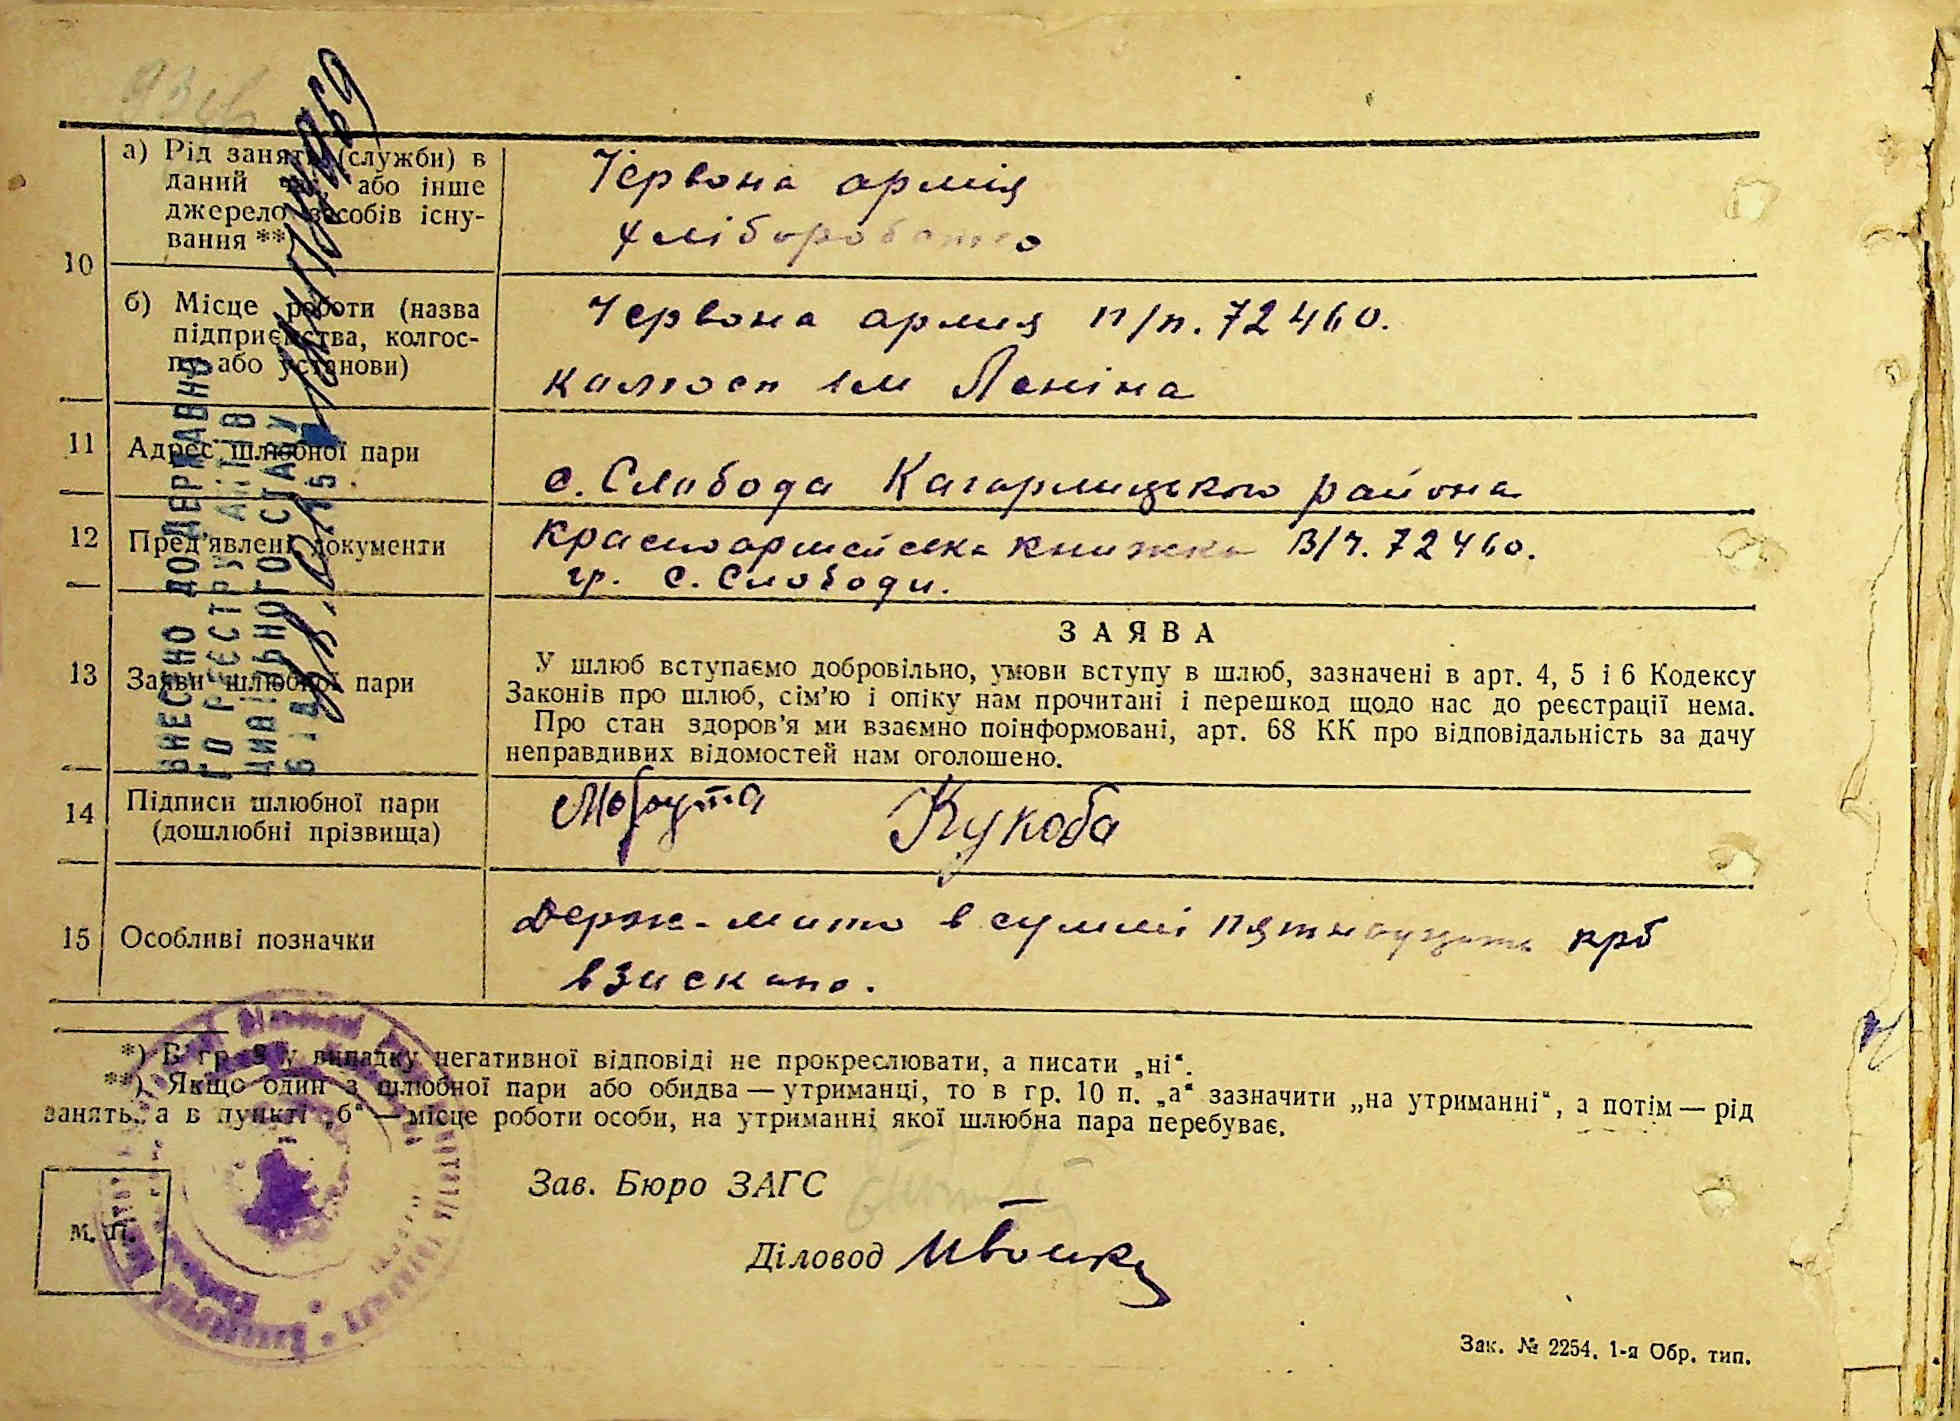 10
а) Рід занять (служби) в
даний час, або інше
джерело засобів існу-
вання **
Червона армія
хліборобство
б) Місце роботи (назва
підприємства, колгос-
пу або установи)
Червона армия п/п. 72460.
колгосп ім Леніна
11 Адрес шлюбної пари
с. Слобода Кагарлицького района
12 Пред'явлені документи
Красноармейська книжка В/ч. 72460.
гр. с. Слободи.
13 Заяви шлюбної пари
ЗАЯВА
У шлюб вступаємо добровільно, умови вступу в шлюб, зазначені в арт. 4, 5 і 6 Кодексу
Законів про шлюб, сім'ю і опіку нам прочитані і перешкод щодо нас до реєстрації нема.
Про стан здоров'я ми взаємно поінформовані, арт. 68 КК про відповідальність за дачу
неправдивих відомостей нам оголошено.
14 Підписи шлюбної пари
(дошлюбні прізвища)
Кукоба
15 Особливі позначки
Держ-мито в суммі пятнадцять крб
взискано.
*) В гр. 9 у випадку негативної відповіді не прокреслювати, а писати „ні“.
**) Якщо один з шлюбної пари або обидва — утриманці, то в гр. 10 п. „а“ зазначити „на утриманні“, а потім — рід
занять, а в пункті „б“ — місце роботи особи, на утриманні якої шлюбна пара перебуває.
Зав. Бюро ЗАГС
Діловод
М. П.
Зак. № 2254. 1-я Обр. тип.
ВНЕСЕНО ДО ДЕРЖАВНО
ГО РЕЄСТРУ АКТІВ
ЦИВІЛЬНОГО СТАНУ